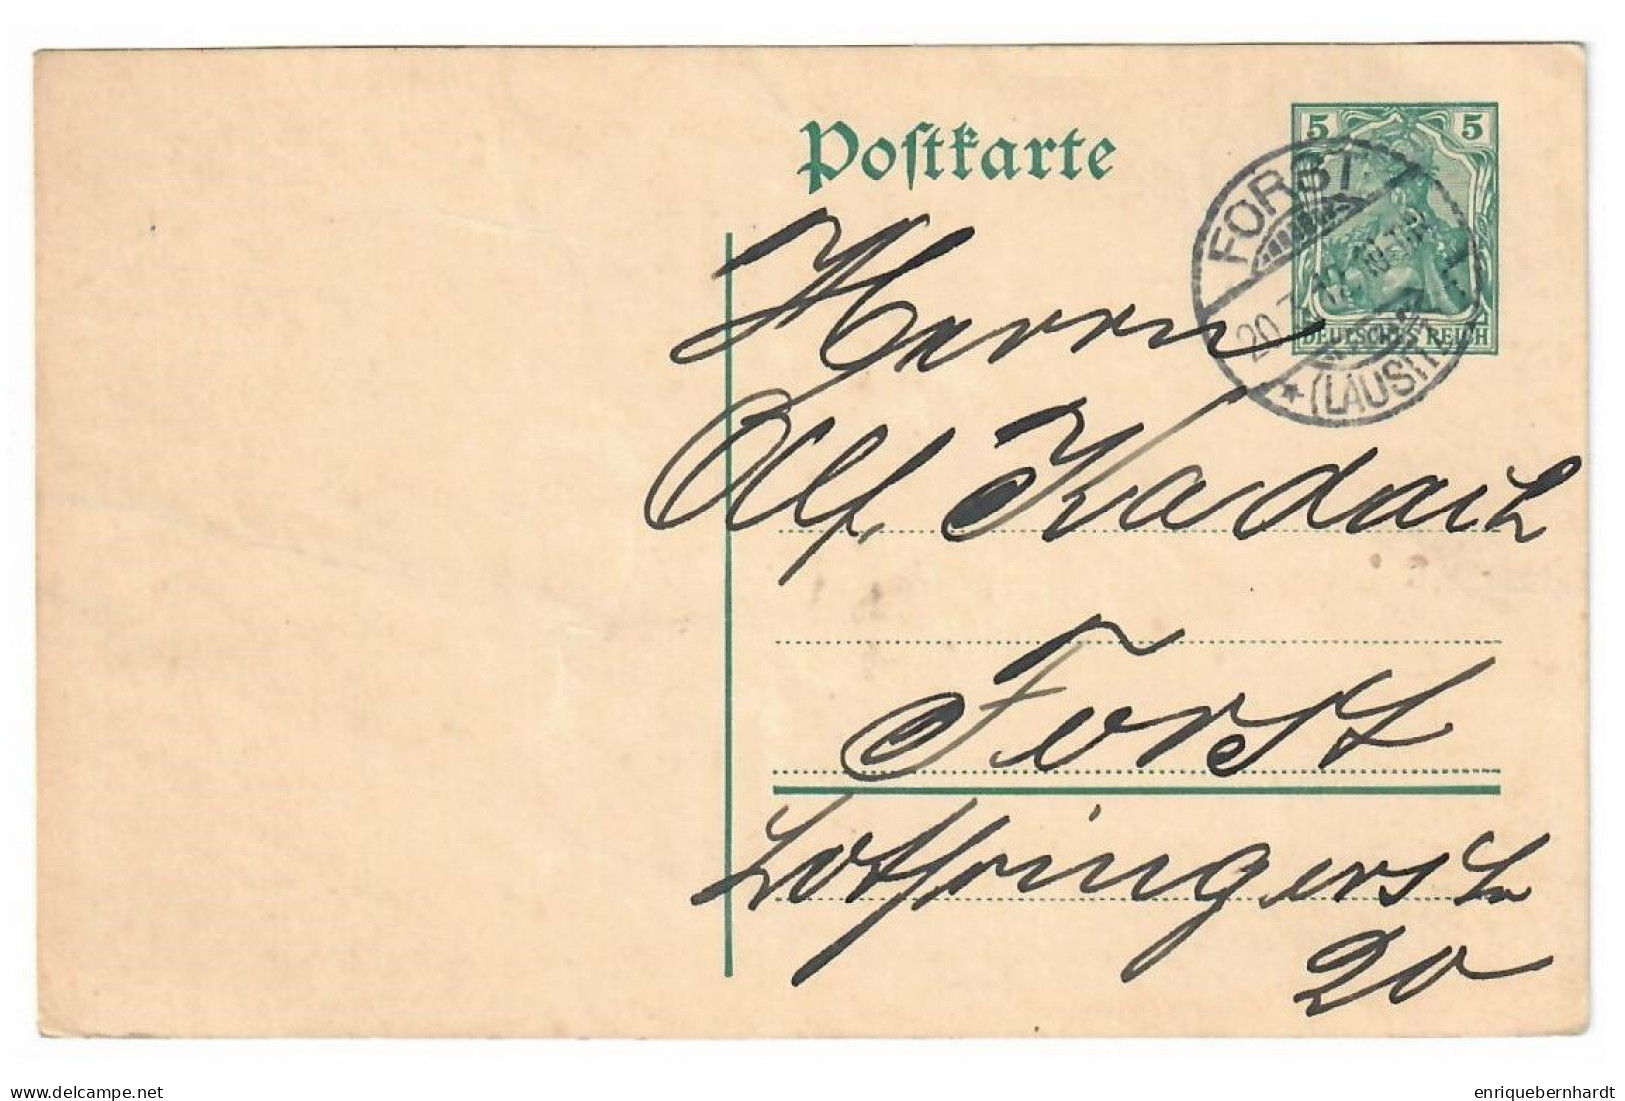 Postkarte
5 5
DEUTSCHES REICH
FORST
(LAUSITZ)
Herrn
Alf. Kadach
Forst
Lothringerstr
20
delcampe.net
enriquebernhardt